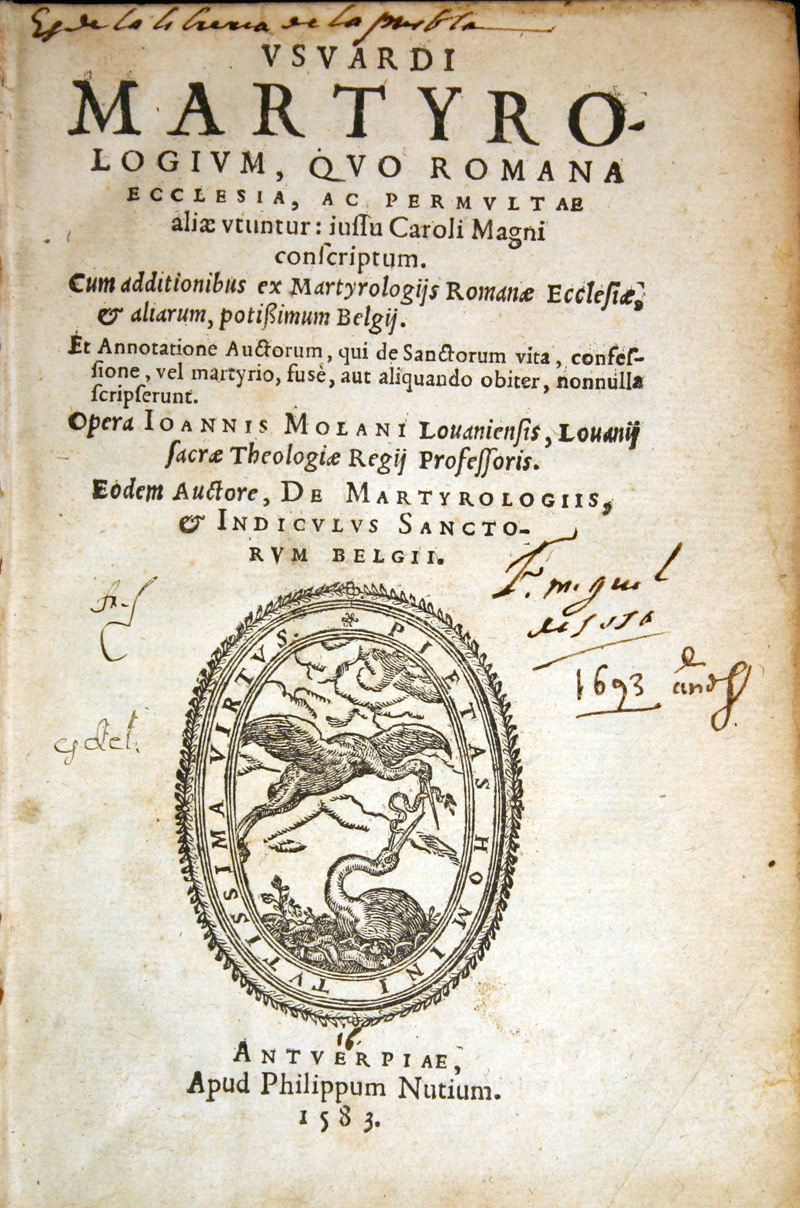 Es de la libreria de la puebla
VSVARDI
MARTYRO-
LOGIVM, QVO ROMANA
ECCLESIA, AC PERMVLTAE
aliæ vtuntur: iuſſu Caroli Magni
conſcriptum.
Cum additionibus ex Martyrologijs Romanæ Eccleſiæ,
& aliarum, potißimum Belgij.
Et Annotatione Auctorum, qui de Sanctorum vita, confeſ-
ſione, vel martyrio, fusè, aut aliquando obiter, nonnulla
ſcripſerunt.
Opera IOANNIS MOLANI Louanienſis, Louanij
ſacræ Theologiæ Regij Profeſſoris.
Eodem Auctore, DE MARTYROLOGIIS,
& INDICVLVS SANCTO-
RVM BELGII.
F. miguel
1693
PIETAS HOMINI TVTISSIMA VIRTVS.
16.
ANTVERPIAE,
Apud Philippum Nutium.
1583.